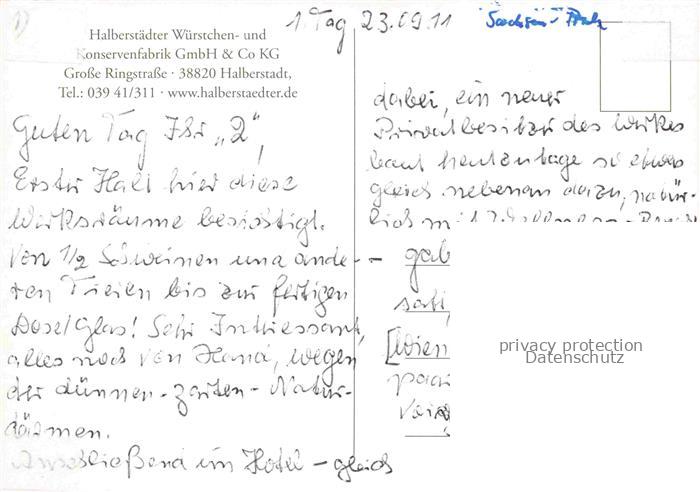 1)
Halberstädter Würstchen- und
Konservenfabrik GmbH & Co KG
Große Ringstraße · 38820 Halberstadt,
Tel.: 039 41/311 · www.halberstaedter.de
1. Tag 23.09.11
Guten Tag Ihr „2“,
Erster Halt hier diese
Wirksräume besichtigt.
Von 1/2 Schweinen und ande-
ren Tieren bis zur fertigen
Dose/Glas! Sehr Interessant,
alles noch von Hand, wegen
der dünnen - zarten - Natur-
därmen.
Anschließend im Hotel - gleich
dabei, ein neuer
Privatbesitzer des Wirkes
baut heutzutage so etwas
gleich nebenan dazu, natür-
lich mit
gab
[Wien
privacy protection
Datenschutz